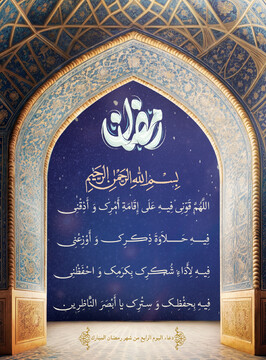 رمضان
بِسْمِ اللهِ الرَّحْمٰنِ الرَّحِيْمِ
اللَّهُمَّ قَوِّنِي فِيهِ عَلَى إِقَامَةِ أَمْرِكَ وَ أَذِقْنِي
فِيهِ حَلاَوَةَ ذِكْرِكَ وَ أَوْزِعْنِي
فِيهِ لِأَدَاءِ شُكْرِكَ بِكَرَمِكَ وَ احْفَظْنِي
فِيهِ بِحِفْظِكَ وَ سِتْرِكَ يا أَبْصَرَ النَّاظِرِينَ
دعاء اليوم الرابع من شهر رمضان المبارك